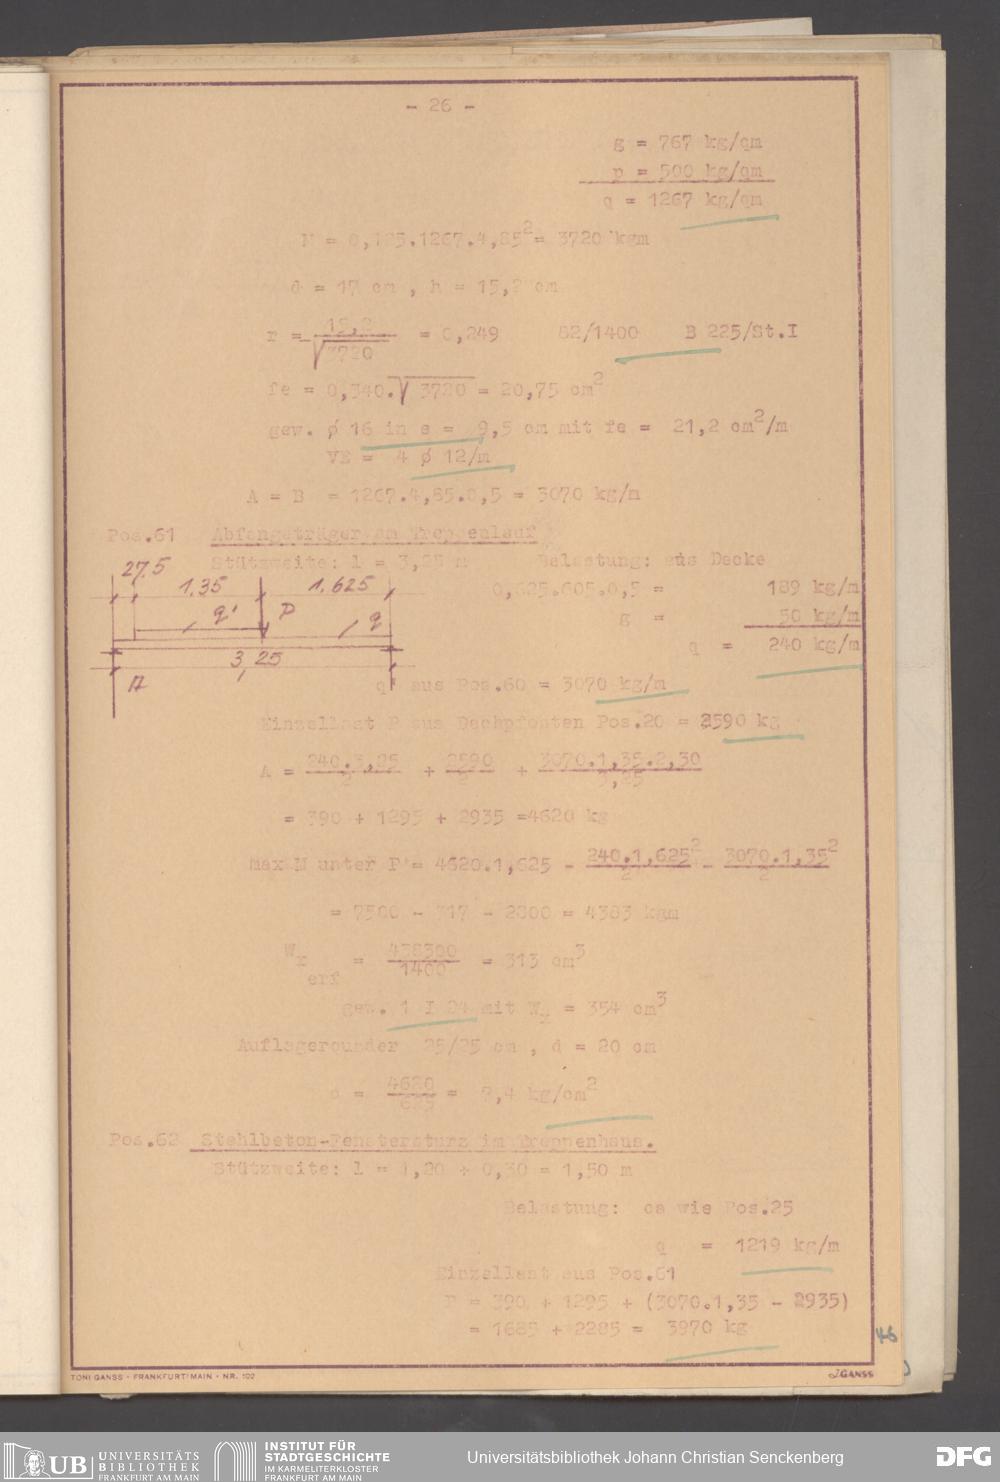 - 26 -
g = 767 kg/qm
p = 500 kg/qm
q = 1267 kg/qm
M = 0,125.1267.4,85² = 3720 kgm
d = 17 cm , h = 15,2 cm
r = 15,2 / √3720 = 0,249 82/1400 B 225/St.I
fe = 0,340.√3720 = 20,75 cm²
gew. ø 16 in e = 9,5 cm mit fe = 21,2 cm²/m
VE = 4 ø 12/m
A = B = 1267.4,85.0,5 = 3070 kg/m
Pos.61 Abfangeträger am Treppenlauf
Stützweite: l = 3,25 m Belastung: aus Decke
27.5
1.35 1.625
0,625.605.0,5 = 189 kg/m
q' P q
g = 50 kg/m
q = 240 kg/m
3,25
A
q' aus Pos.60 = 3070 kg/m
Einzellast P aus Dachpfosten Pos.20 = 2590 kg
A = 240.3,25 / 2 + 2590 / 2 + 3070.1,35.2,30 / 3,25
= 390 + 1295 + 2935 =4620 kg
max M unter P = 4620.1,625 - 240.1,625² / 2 - 3070.1,35² / 2
= 7500 - 317 - 2800 = 4383 kgm
Wx erf = 438300 / 1400 = 313 cm³
gew. 1 I 24 mit Wx = 354 cm³
Auflagerquader 25/25 cm , d = 20 cm
= 4620 / 625 = 7,4 kg/cm²
Pos.62 Stahlbeton-Fenstersturz im Treppenhaus.
Stützweite: l = 1,20 + 0,30 = 1,50 m
Belastung: ca wie Pos.25
q = 1219 kg/m
Einzellast aus Pos.61
P = 390 + 1295 + (3070.1,35 - 2935)
= 1685 + 2285 = 3970 kg
46
TONI GANSS · FRANKFURT/MAIN · NR. 102
J.GANSS
UB UNIVERSITÄTS
BIBLIOTHEK
FRANKFURT AM MAIN
INSTITUT FÜR
STADTGESCHICHTE
IM KARMELITERKLOSTER
FRANKFURT AM MAIN
Universitätsbibliothek Johann Christian Senckenberg
DFG